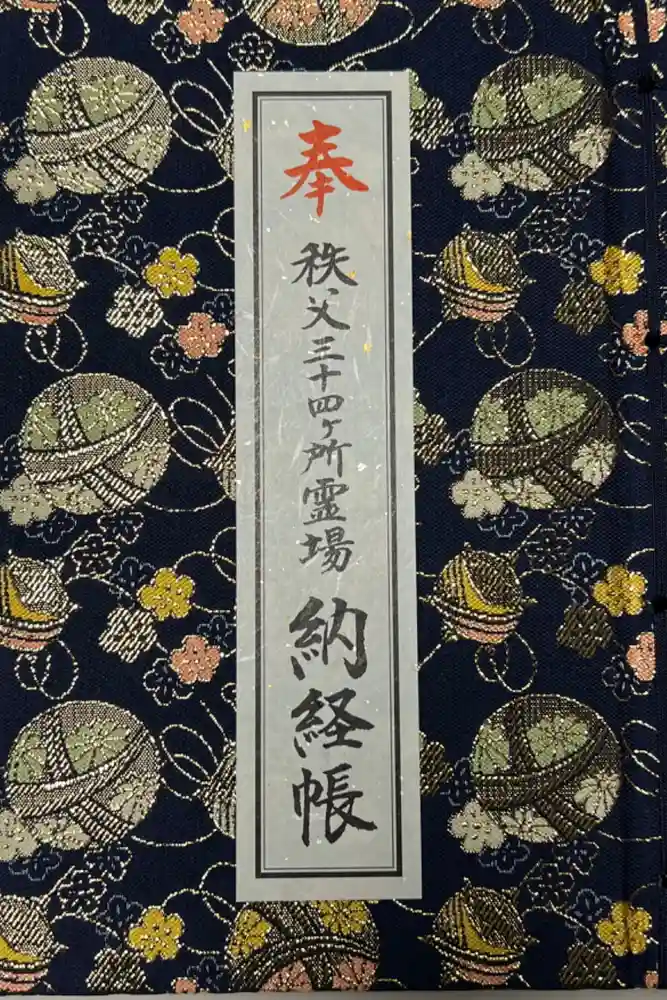 奉
秩父三十四ヶ所霊場 納経帳